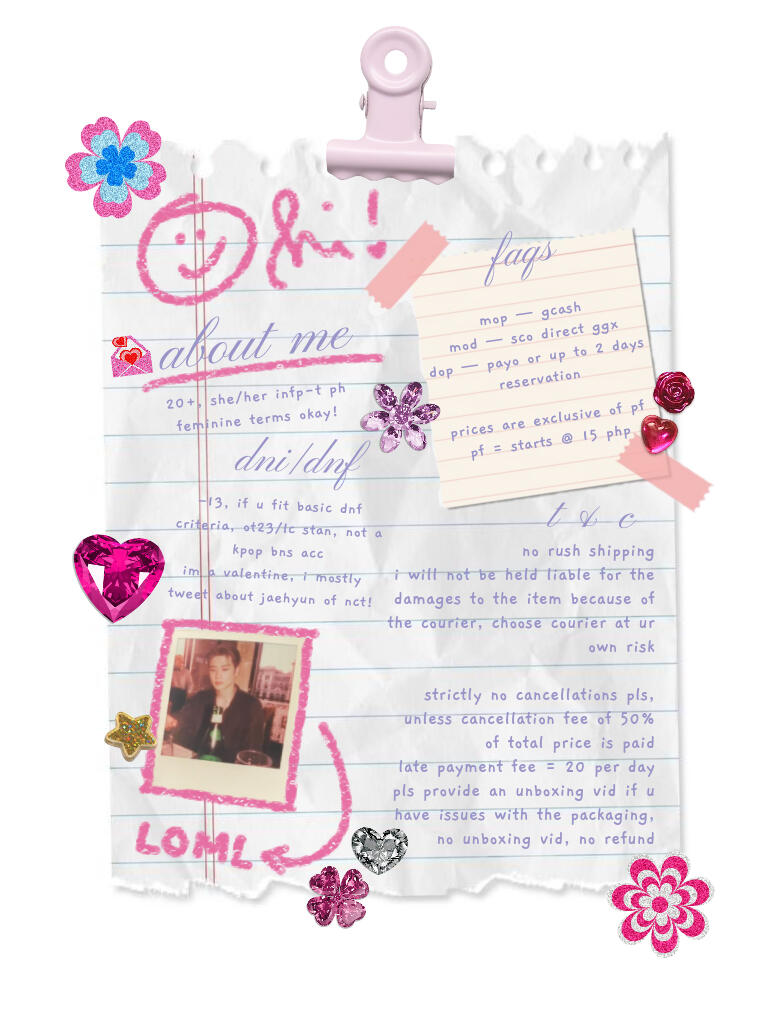 hi!
about me
20+, she/her infp-t ph
feminine terms okay!
dni/dnf
-13, if u fit basic dnf
criteria, ot23/lc stan, not a
kpop bns acc
im a valentine, i mostly
tweet about jaehyun of nct!
LOML
faqs
mop — gcash
mod — sco direct ggx
dop — payo or up to 2 days
reservation
prices are exclusive of pf
pf = starts @ 15 php
t & c
no rush shipping
i will not be held liable for the
damages to the item because of
the courier, choose courier at ur
own risk
strictly no cancellations pls,
unless cancellation fee of 50%
of total price is paid
late payment fee = 20 per day
pls provide an unboxing vid if u
have issues with the packaging,
no unboxing vid, no refund